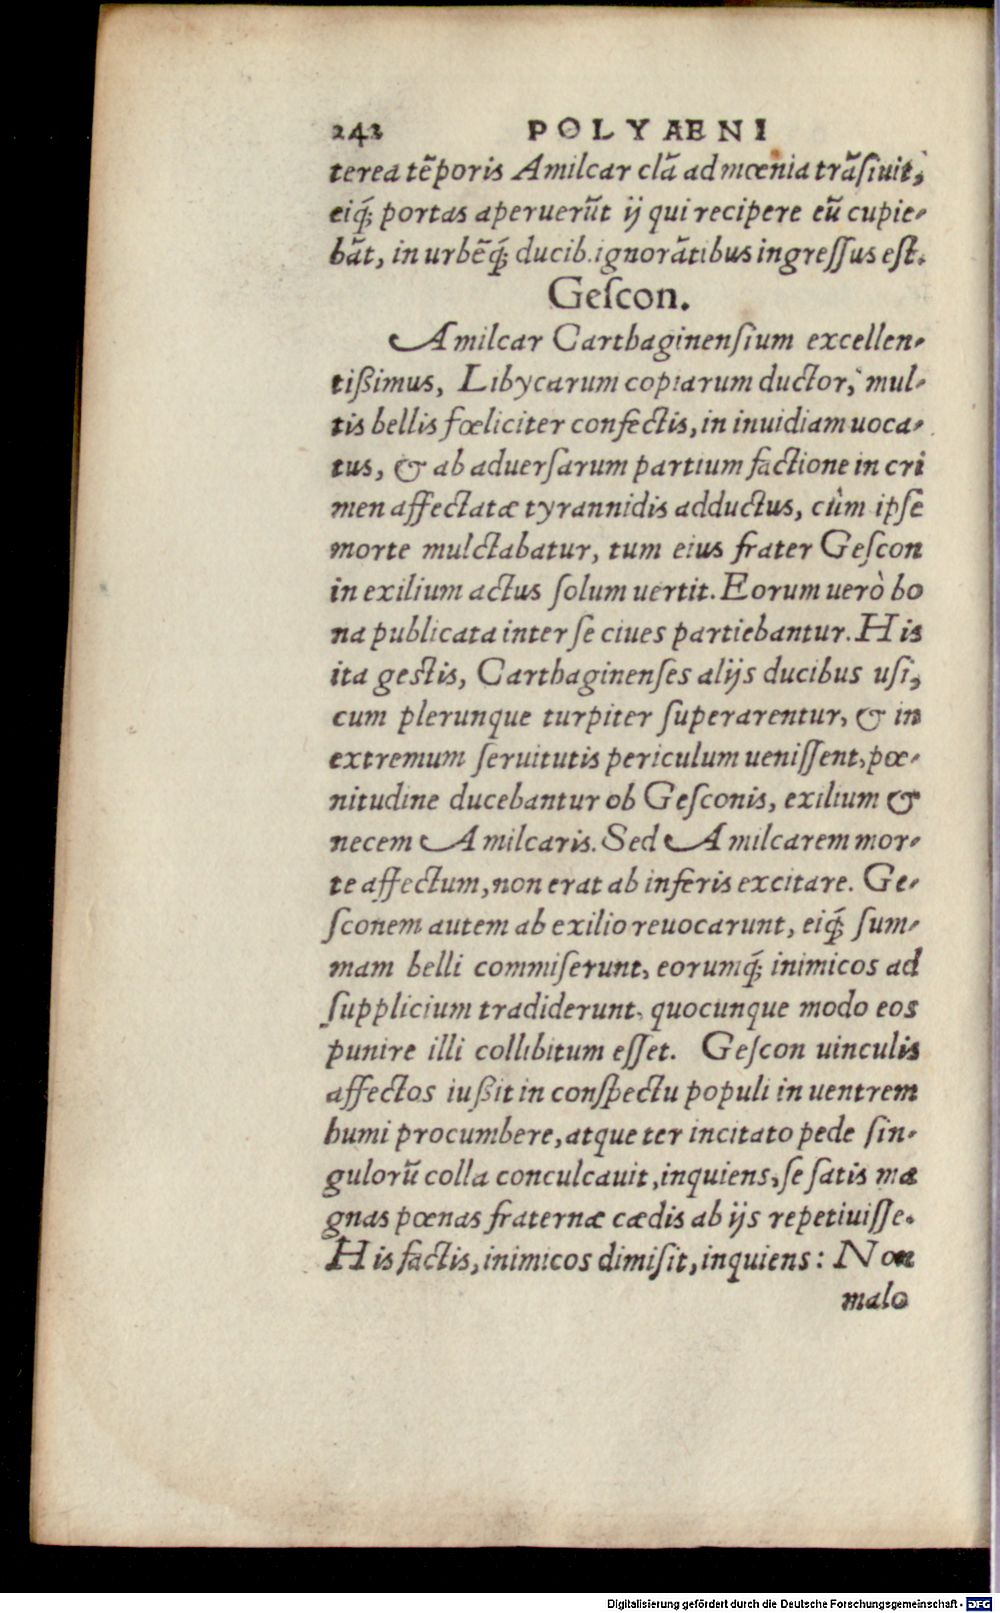 242 POLYAENI
terea tẽporis Amilcar clã ad mœnia trãſiuit,
eiq́; portas aperuerũt ij qui recipere eũ cupie-
bãt, in urbẽq́; ducib. ignorãtibus ingreſſus eſt.
Geſcon.
Amilcar Carthaginenſium excellen-
tißimus, Libycarum copiarum ductor, mul-
tis bellis fœliciter confectis, in inuidiam uoca-
tus, & ab aduerſarum partium factione in cri
men affectatæ tyrannidis adductus, cùm ipſe
morte mulctabatur, tum eius frater Geſcon
in exilium actus ſolum uertit. Eorum uerò bo
na publicata inter ſe ciues partiebantur. His
ita geſtis, Carthaginenſes alijs ducibus uſi,
cum plerunque turpiter ſuperarentur, & in
extremum ſeruitutis periculum ueniſſent, pœ-
nitudine ducebantur ob Geſconis, exilium &
necem Amilcaris. Sed Amilcarem mor-
te affectum, non erat ab inferis excitare. Ge-
ſconem autem ab exilio reuocarunt, eiq́; ſum-
mam belli commiſerunt, eorumq́; inimicos ad
ſupplicium tradiderunt, quocunque modo eos
punire illi collibitum eſſet. Geſcon uinculis
affectos iußit in conſpectu populi in uentrem
humi procumbere, atque ter incitato pede ſin-
gulorũ colla conculcauit, inquiens, ſe ſatis ma
gnas pœnas fraternæ cædis ab ijs repetiuiſſe.
His factis, inimicos dimiſit, inquiens: Non
malo
Digitalisierung gefördert durch die Deutsche Forschungsgemeinschaft - DFG